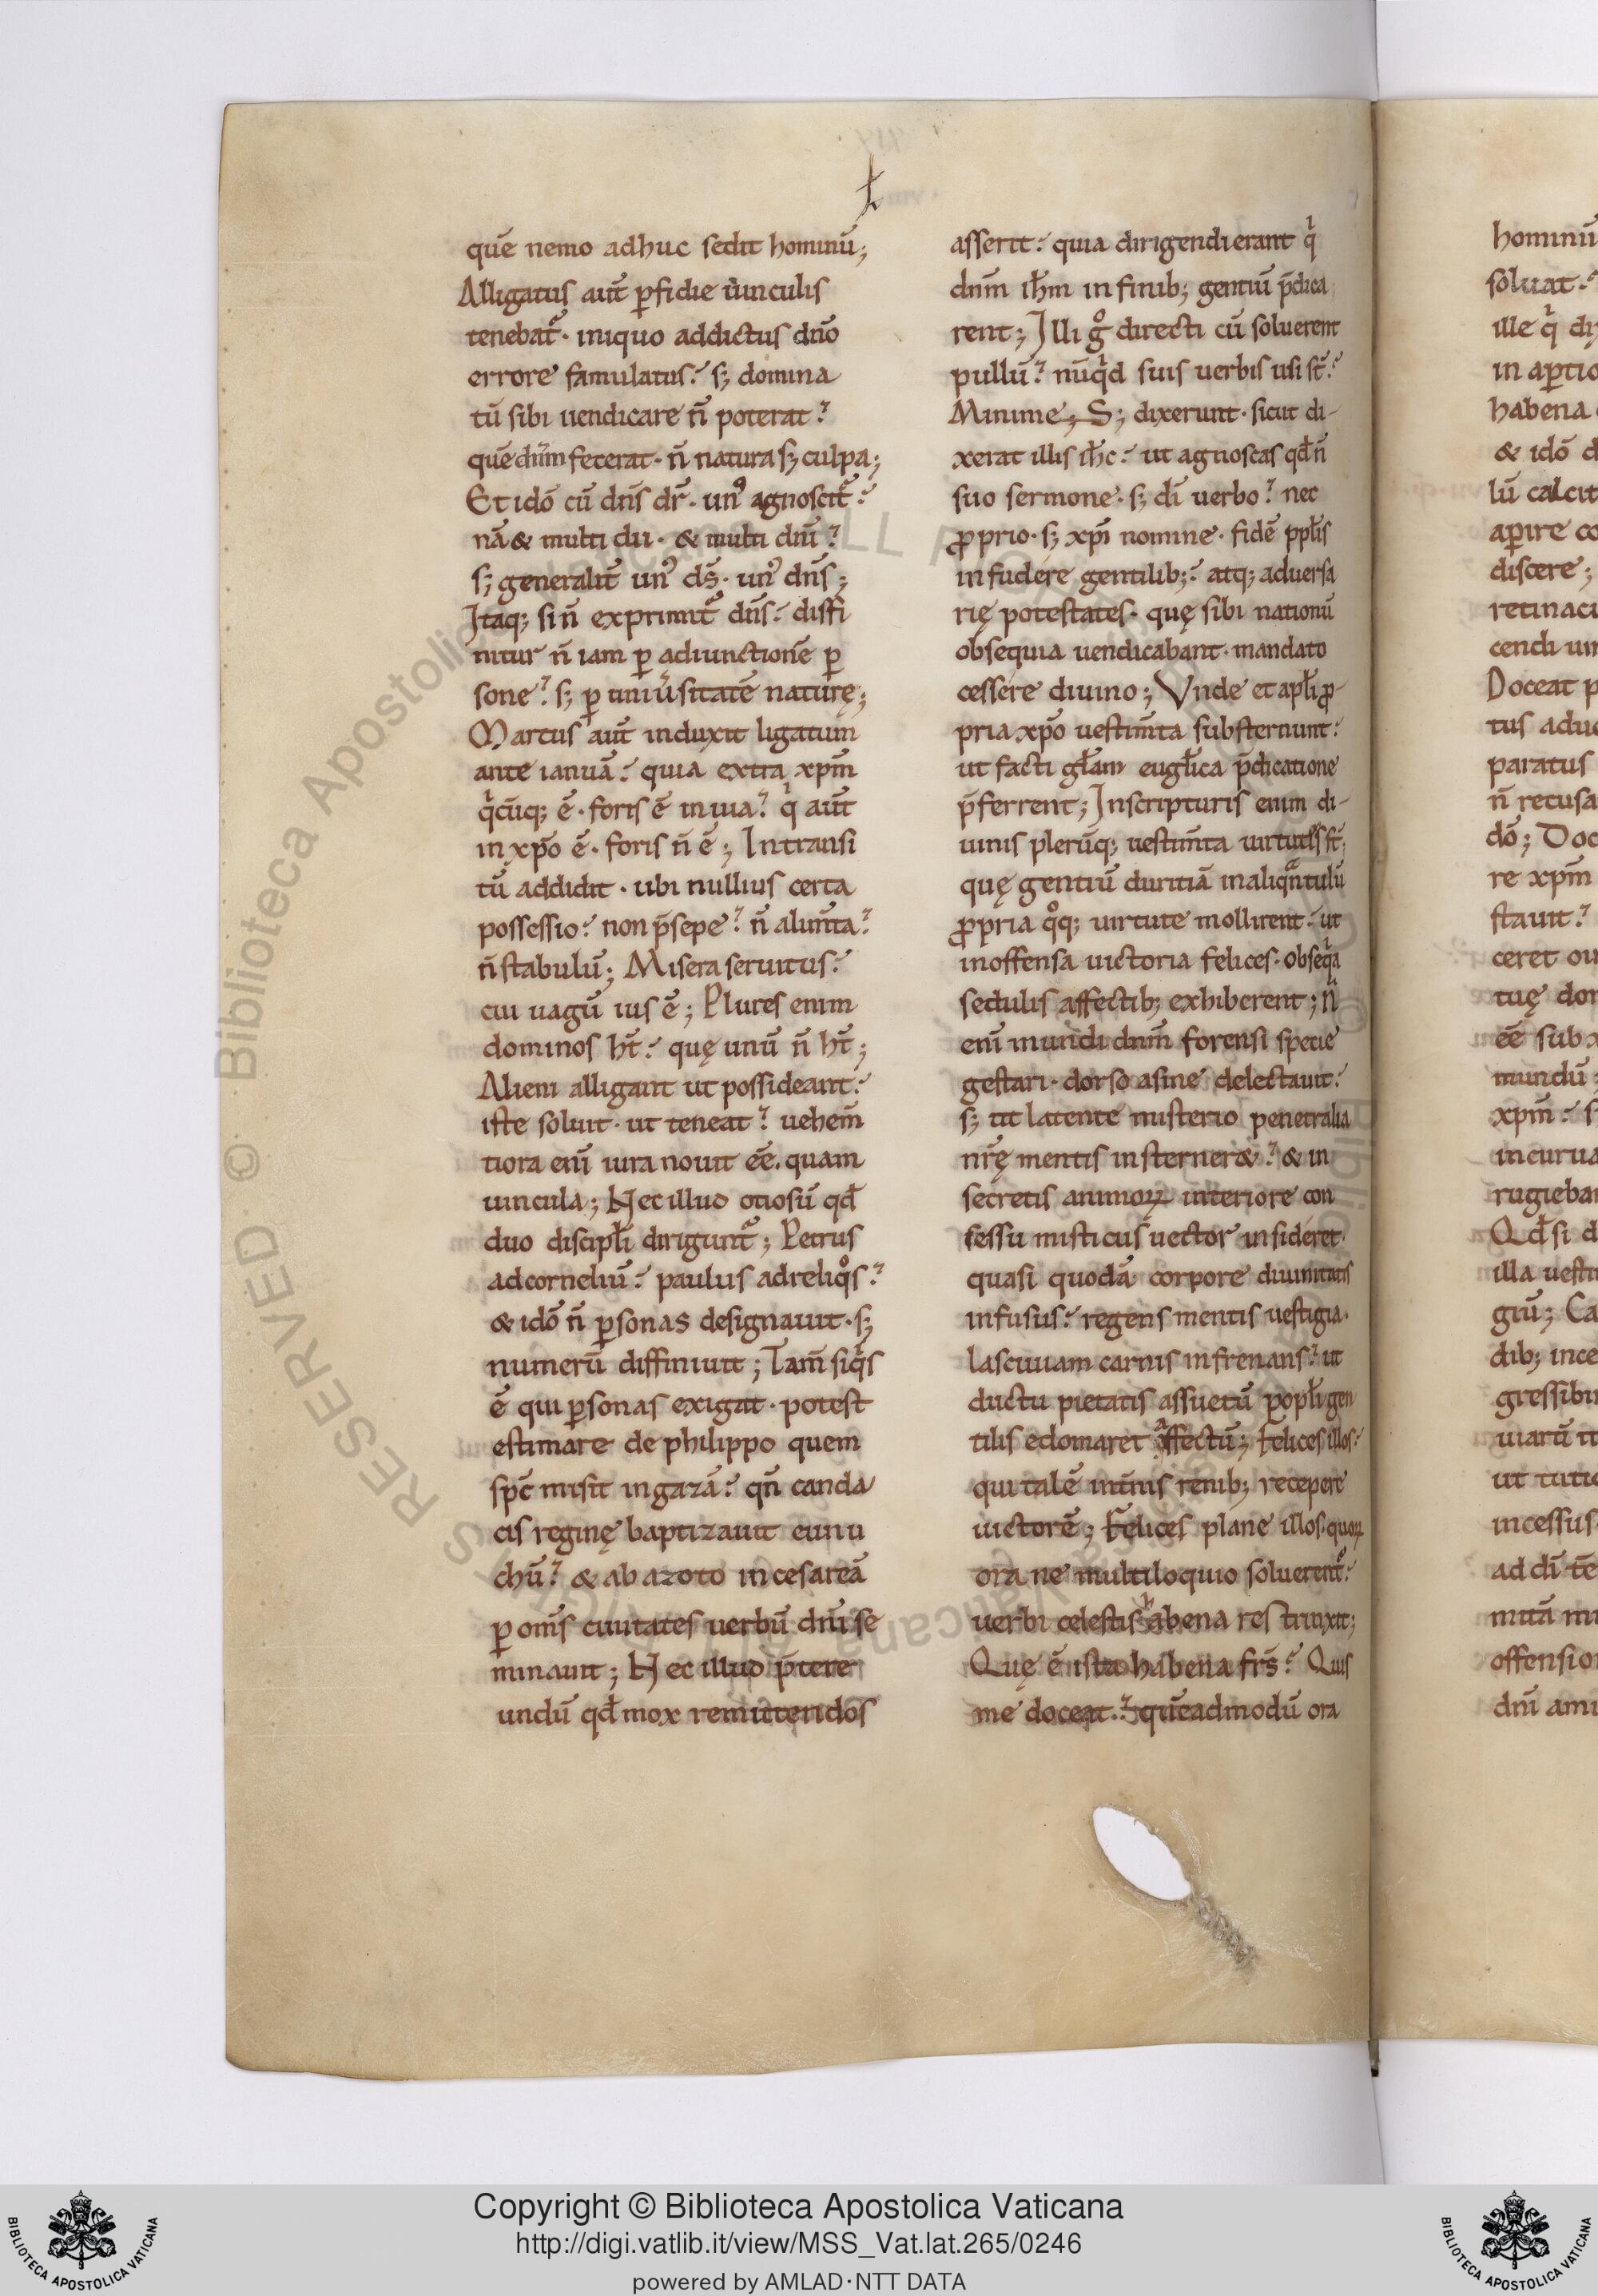 quē nemo adhuc sedit hominū;
Alligatus aut̄ ꝑfidie uinculis
tenebat᷑· iniquo addictus dn̄o
errore famulatus? s; domina
tū sibi uendicare n̄ poterat?
quē dn̄m fecerat· n̄ natura s; culpa;
Et idō cū dn̄s dr̄· un⁹ agnoscit᷑?
nā & multi dii· & multi dn̄i?
s; generalit̄ un⁹ ds̄· un⁹ dn̄s;
Itaq; si n̄ exprimit᷑ dn̄s? diffi
nitur n̄ iam ꝑ adiunctionē ꝑ
sone? s; ꝑ uniūsitatē naturę;
Marcus aut̄ induxit ligatum
ante ianuā? quia extra xp̄m
qͥcūq; ē· foris ē in uia? qͥ aut̄
in xp̄o ē· foris n̄ ē; In transi
tū addidit· ubi nullius certa
possessio? non p̄sepe? n̄ alim̄ta?
n̄ stabulū; Misera seruitus?
cui uagū ius ē; Plures enim
dominos ht̄? quę unū n̄ ht̄;
Alieni alligant ut possideant?
iste soluit· ut teneat? uehem̄
tiora eni̅ iura nouit eē· quam
uincula; Nec illud otiosū qđ
duo discipłi dirigunt᷑; Petrus
ad corneliū? paulus ad reliqͦs?
& idō n̄ ꝑsonas designauit· s;
numerū diffiniuit; Tam̄ siqͥs
ē qui ꝑsonas exigat· potest
estimare de philippo quem
sp̄c misit in gazā? qn̄ canda
cis reginę baptizauit eunu
chū? & ab azoto in cesareā
ꝑ om̄s ciuitates uerbū dn̄i se
minauit; Nec illud p̄tere
undū qđ mox remittendos
asserit? quia dirigendi erant qͥ
dn̄m ih̄m in finib; gentiū p̄dica
rent; Illi gͦ directi cū soluerent
pullū? nūqͥd suis uerbis usi st̄?
Minime; S; dixerunt· sicut di-
xerat illis ih̄c? ut agnoscas qđ n̄
suo sermone· s; dī uerbo? nec
ꝓprio· s; xp̄i nomine· fidē ppłis
infudére gentilib;? atq; aduersa
rię potestates· quę sibi nationū
obsequia uendicabant· mandato
cessére diuino; Vnde et apłi ꝓ-
pria xp̄o uestim̄ta substernunt?
ut facti głam eugłica p̄dicatione
p̄ferrent; In scripturis enim di-
uinis plerūq; uestim̄ta uirtutes st̄;
quę gentiū duritiā in aliqᵃntulū
ꝓpria qͦq; uirtute mollirent? ut
inoffensa uictoria felices· obseqͥa
sedulis affectib; exhiberent; n̄
eni̅ mundi dn̄m forensi specie
gestari· dorso asine delectauit?
s; ut latente misterio penetralia
nr̄ę mentis insterner&? & in
secretis animoꝝ interiore con
sessu misticus uector insideret·
quasi quodā corpore diuinitatis
infusus? regens mentis uestigia·
lasciuiam carnis infrenans? ut
ductu pietatis assuetū popłi gen
tilis edomaret affectū; Felices illos?
qui talē int̄nis renib; recepere
uictorē; Felices plane illos· quoꝝ
ora ne multiloquio soluerent᷑?
uerbi celestis habena restrinxit;
Quę ē ista habena fr̄s? Quis
me doceat? quēadmodū ora
hominū
soluat·
ille qͥ di
in aꝑtio
habena
& idō d
lū calcit
aꝑire co
discere;
retinacu
cendi uin
Doceat p
tus adue
paratus
n̄ recusa
dō; Doc
re xp̄m
stauit?
ceret ou
tuę dom
eē sub
mundū
xp̄m? s
incurua
rugieba
Qđ si d
illa uesti
giū; Ca
dib; ince
gressibu
uiarū it
ut tutio
incessus
ad dī tē
mitā mi
offensio
dn̄i ami
Copyright © Biblioteca Apostolica Vaticana
http://digi.vatlib.it/view/MSS_Vat.lat.265/0246
powered by AMLAD·NTT DATA
BIBLIOTECA APOSTOLICA VATICANA
BIBLIOTECA APOSTOLICA VATICANA